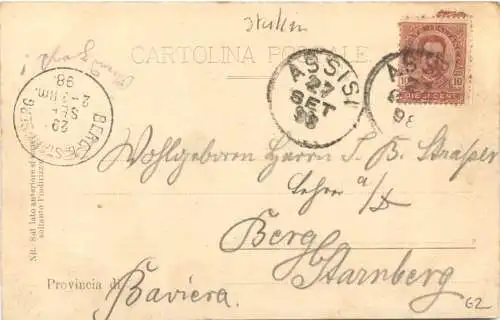 CARTOLINA POSTALE
ASSISI
27
SET
98
ASSISI
98
DIECI CENT.
10
BERG
STARNBERG
29
SEP
2-3 Nm.
98
Wohlgeboren Herrn J. B. Strasser
Lehrer a/D
Berg
Starnberg
Provincia di Baviera.
NB. Sul lato anteriore si scrive
soltanto l'indirizzo
62